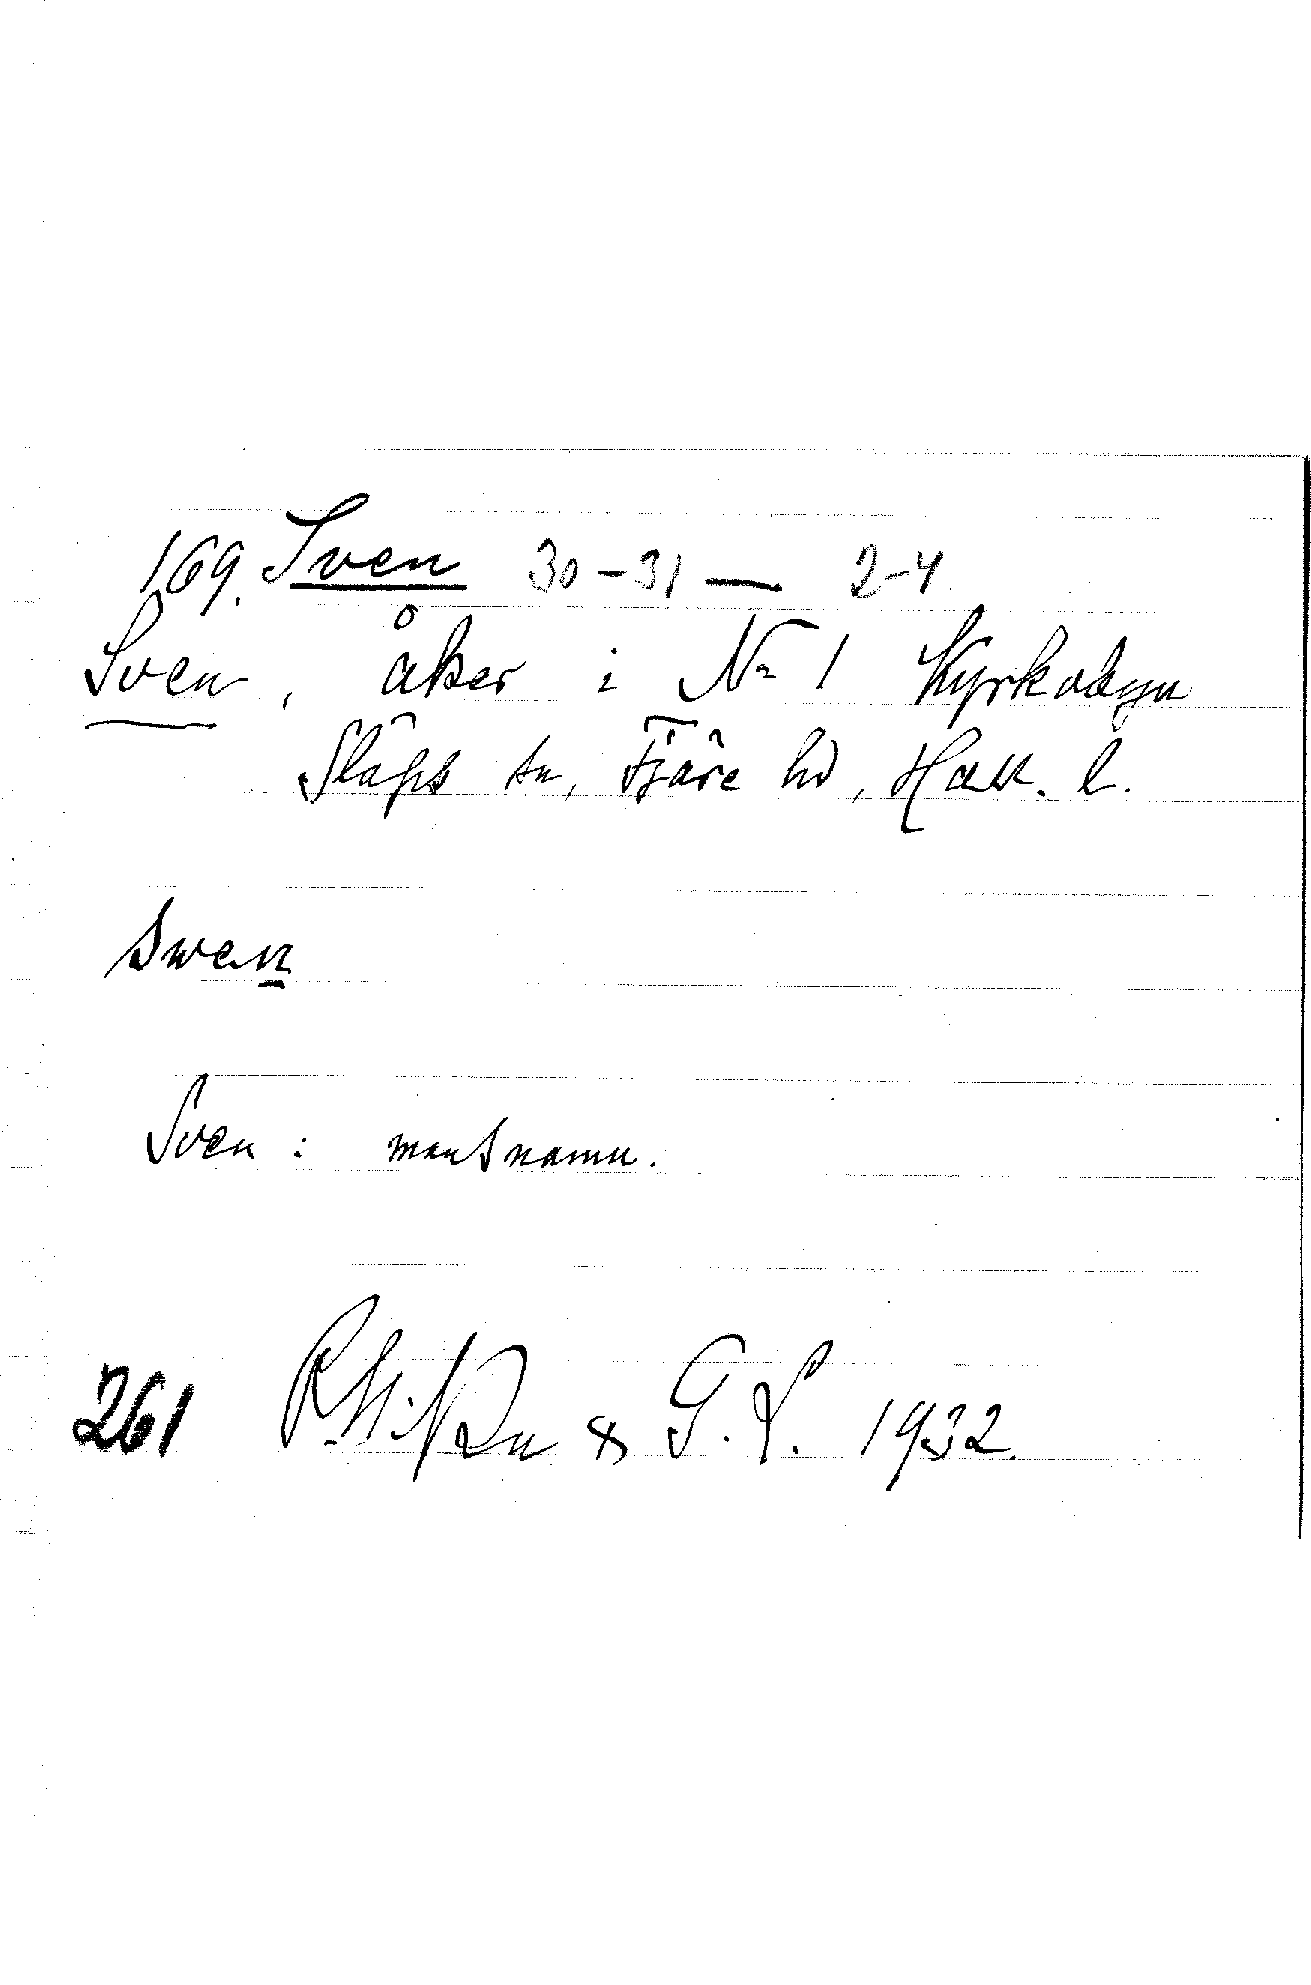 169. Sven 30-31 — 2-4
Sven, åker i No 1 Kyrkobyn
Släps sn, Fjäre hd, Hall. l.
swen
Sven: mansnamn.
261 & G. L. 1932.